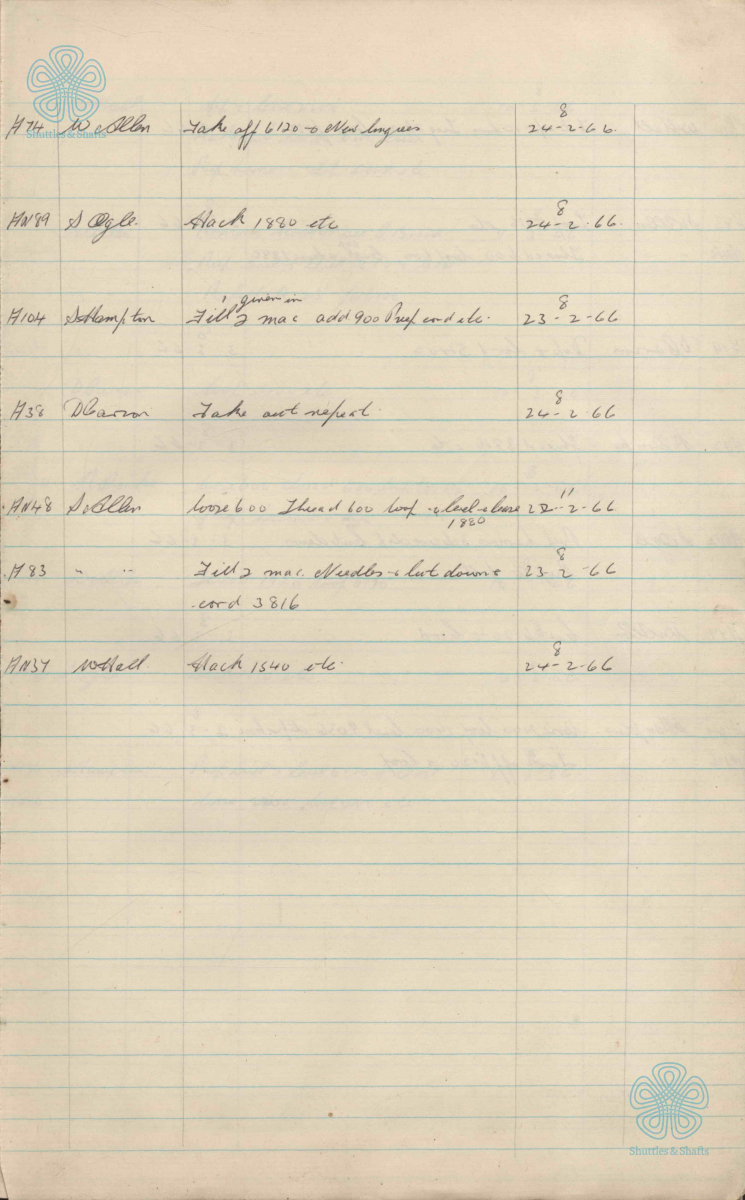 8
H74 W. Allen Take off 6120 & New lingrees 24-2-66.
Shuttles & Shafts
8
HN89 S Ogle. Slack 1880 etc 24-2-66.
given in 8
H104 S Hampton Fill 2 mac add 900 Prep cord etc. 23-2-66
8
H38 D Carson Take out repeat. 24-2-66
11
HN48 S. Allen loose 600 Thread 600 loop & level & loose 22-2-66
1880
8
H83 " " Fill 2 mac. Needles & let down & 23-2-66
cord 3816
8
HN37 W Hall Slack 1540 etc. 24-2-66
Shuttles & Shafts